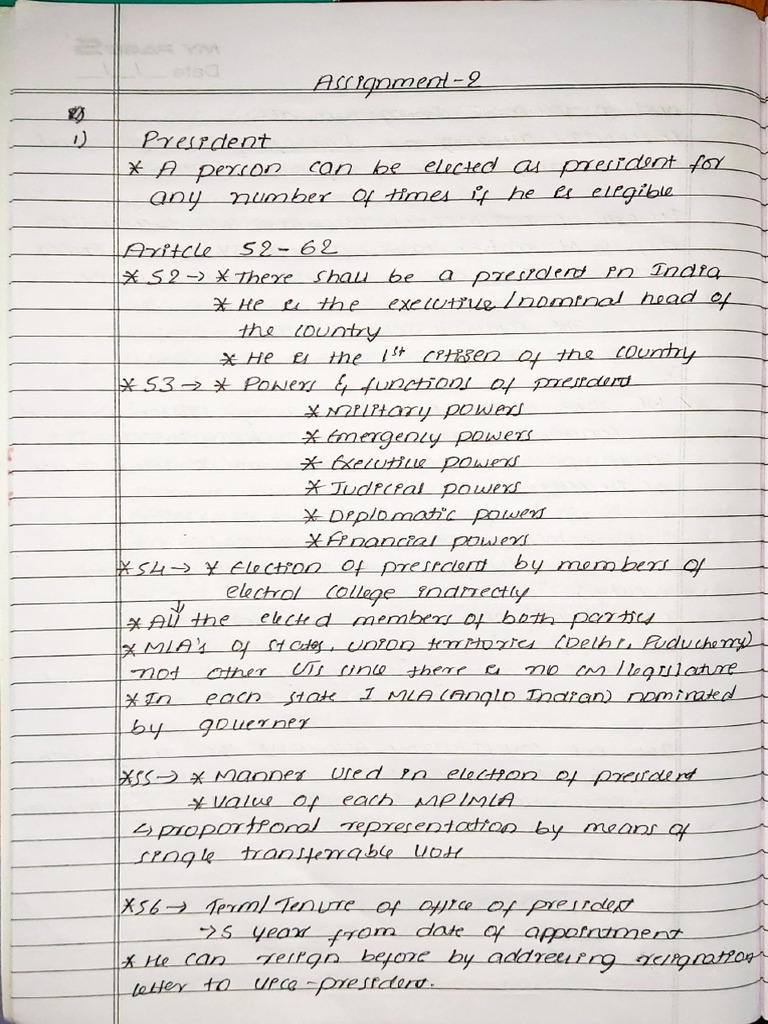 Assignment-2
1) President
* A person can be elected as president for
any number of times if he is elegible
Aritcle 52-62
* 52 → * There shall be a president in India
* He is the executive/nominal head of
the country
* He is the 1st citizen of the country
* 53 → * Powers & functions of president
* Military powers
* Emergency powers
* Executive powers
* Judicial powers
* Diplomatic powers
* Financial powers
* 54 → * Election of president by members of
electrol college indirectly
* All the elected members of both parties
* MLA's of states, union territories (Delhi, Puducherry)
not other UTs since there is no CM/legislature
* In each state 1 MLA (Anglo Indian) nominated
by governer
* 55 → * Manner used in election of president
* Value of each MP/MLA
↳ proportional representation by means of
single transferrable vote
* 56 → Term/Tenure of office of president
→ 5 years from date of appointment
* He can resign before by addressing resignation
letter to vice-president.